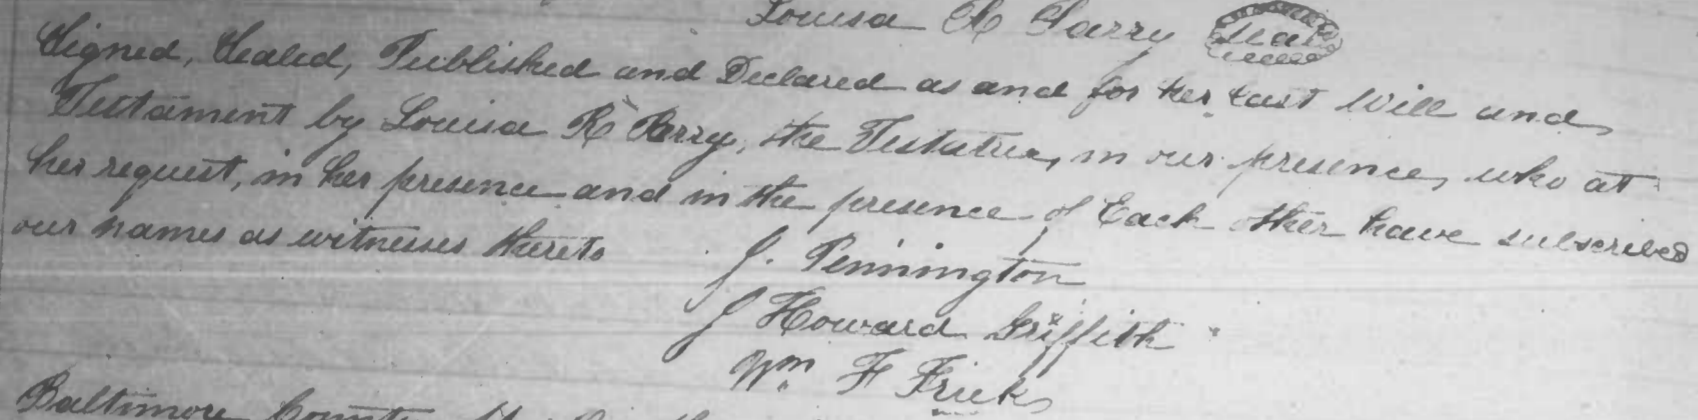 Louisa R Parry Seal
Signed, Sealed, Published and Declared as and for her Last Will and
Testament by Louisa R Parry, the Testatrix, in our presence, who at
her request, in her presence and in the presence of Each other have subscribed
our names as witnesses thereto
J. Pennington
J Howard Griffith
Wm F Frick
Baltimore County